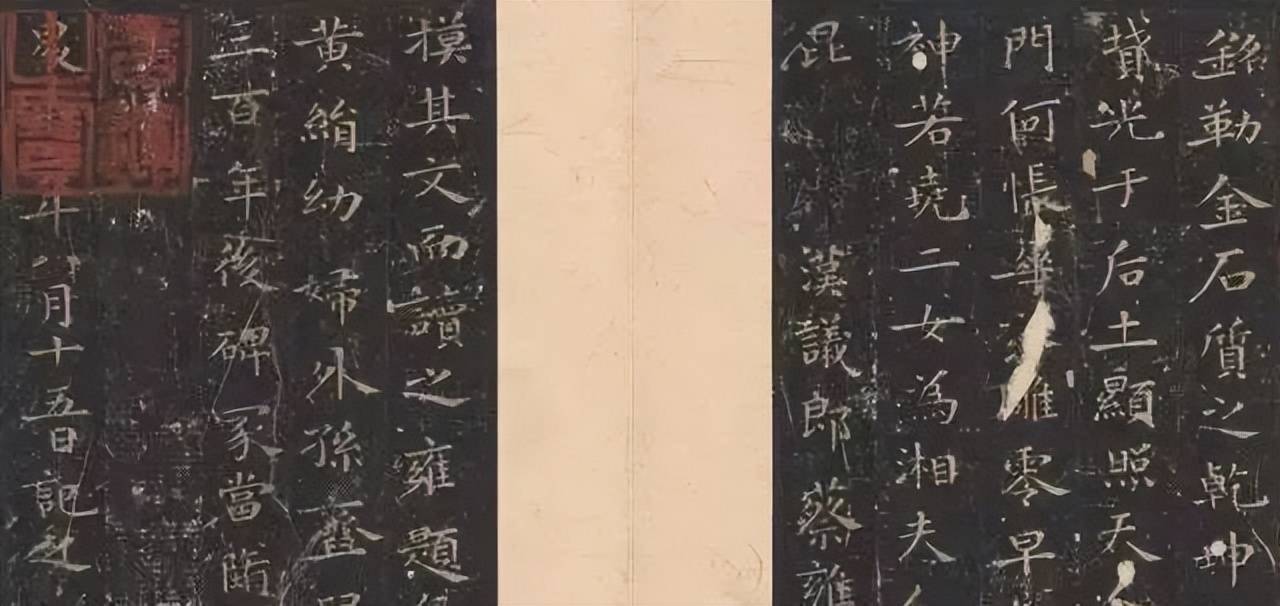 銘勒金石質之乾坤
光于后土顯照天人
門何悵華落雕零早
神若堯二女為湘夫人
昆 漢議郎蔡雍
摸其文而讀之雍題
黃絹幼婦外孫齏臼
三百年後碑冢當墮
年八月十五日記之